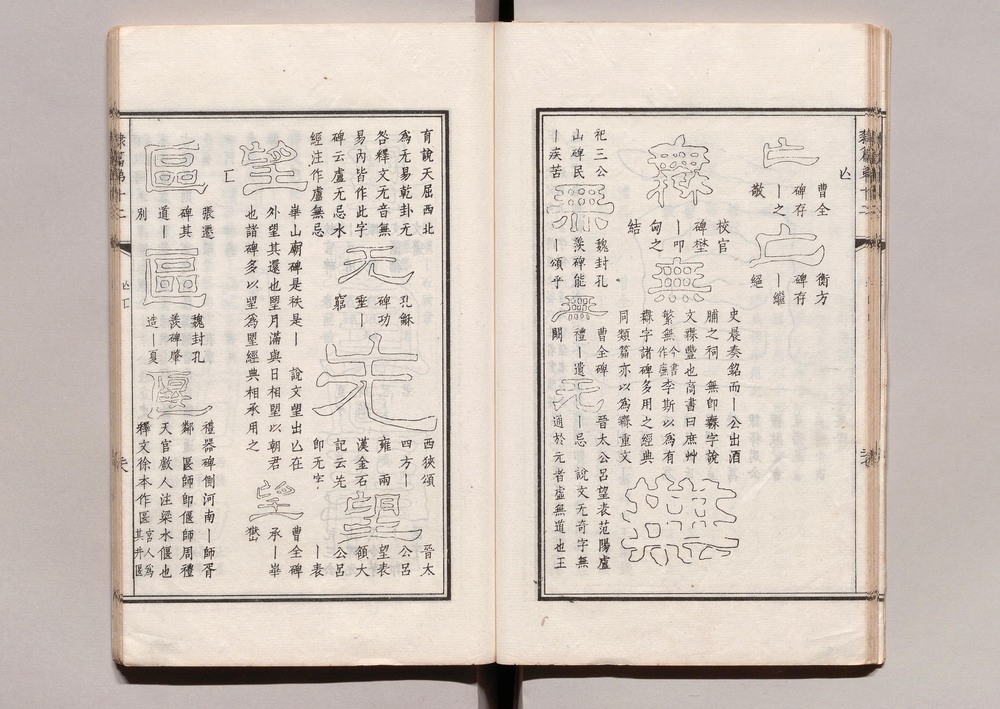 隸篇弟十二
亾
亡
曹全
碑存
｜之
敬
亡
衡方
碑存
｜繼
絕
橆
校官
碑塋
｜叩
匈之
結
無
史晨奏銘而｜公出酒
脯之祠　無即橆字說
文橆豐也商書曰庶艸
繁無今書作廡李斯以爲有
橆字諸碑多用之經典
同類篇亦以爲橆重文
無
祀三公
山碑民
｜疾苦
無
魏封孔
羨碑能
｜頌乎
無
曹全碑
禮｜遺
闕
无
晉太公呂望表范陽盧
｜忌　說文无奇字無
通於元者虛無道也王
育說天屈西北
爲无易乾卦无
咎釋文无音無
易內皆作此字
碑云盧无忌水
經注作盧無忌
无
孔龢
碑功
垂｜
窮
先
西狹頌
四方｜
雍　兩
漢金石
記云先
即无字
望
晉太
公呂
望表
領大
公呂
｜表
望
華山廟碑是秩是｜　說文望出亾在
外望其還也朢月滿與日相朢以朝君
也諸碑多以望爲朢經典相承用之
望
曹全碑
承｜華
嶽
匚
區
張遷
碑其
道｜
別
區
魏封孔
羨碑肇
造｜夏
匽
禮器碑側河南｜師胥
鄰　匽師即偃師周禮
天官䱷人注梁水偃也
釋文徐本作匽宮人爲其井匽
隸篇弟十二
亾匚